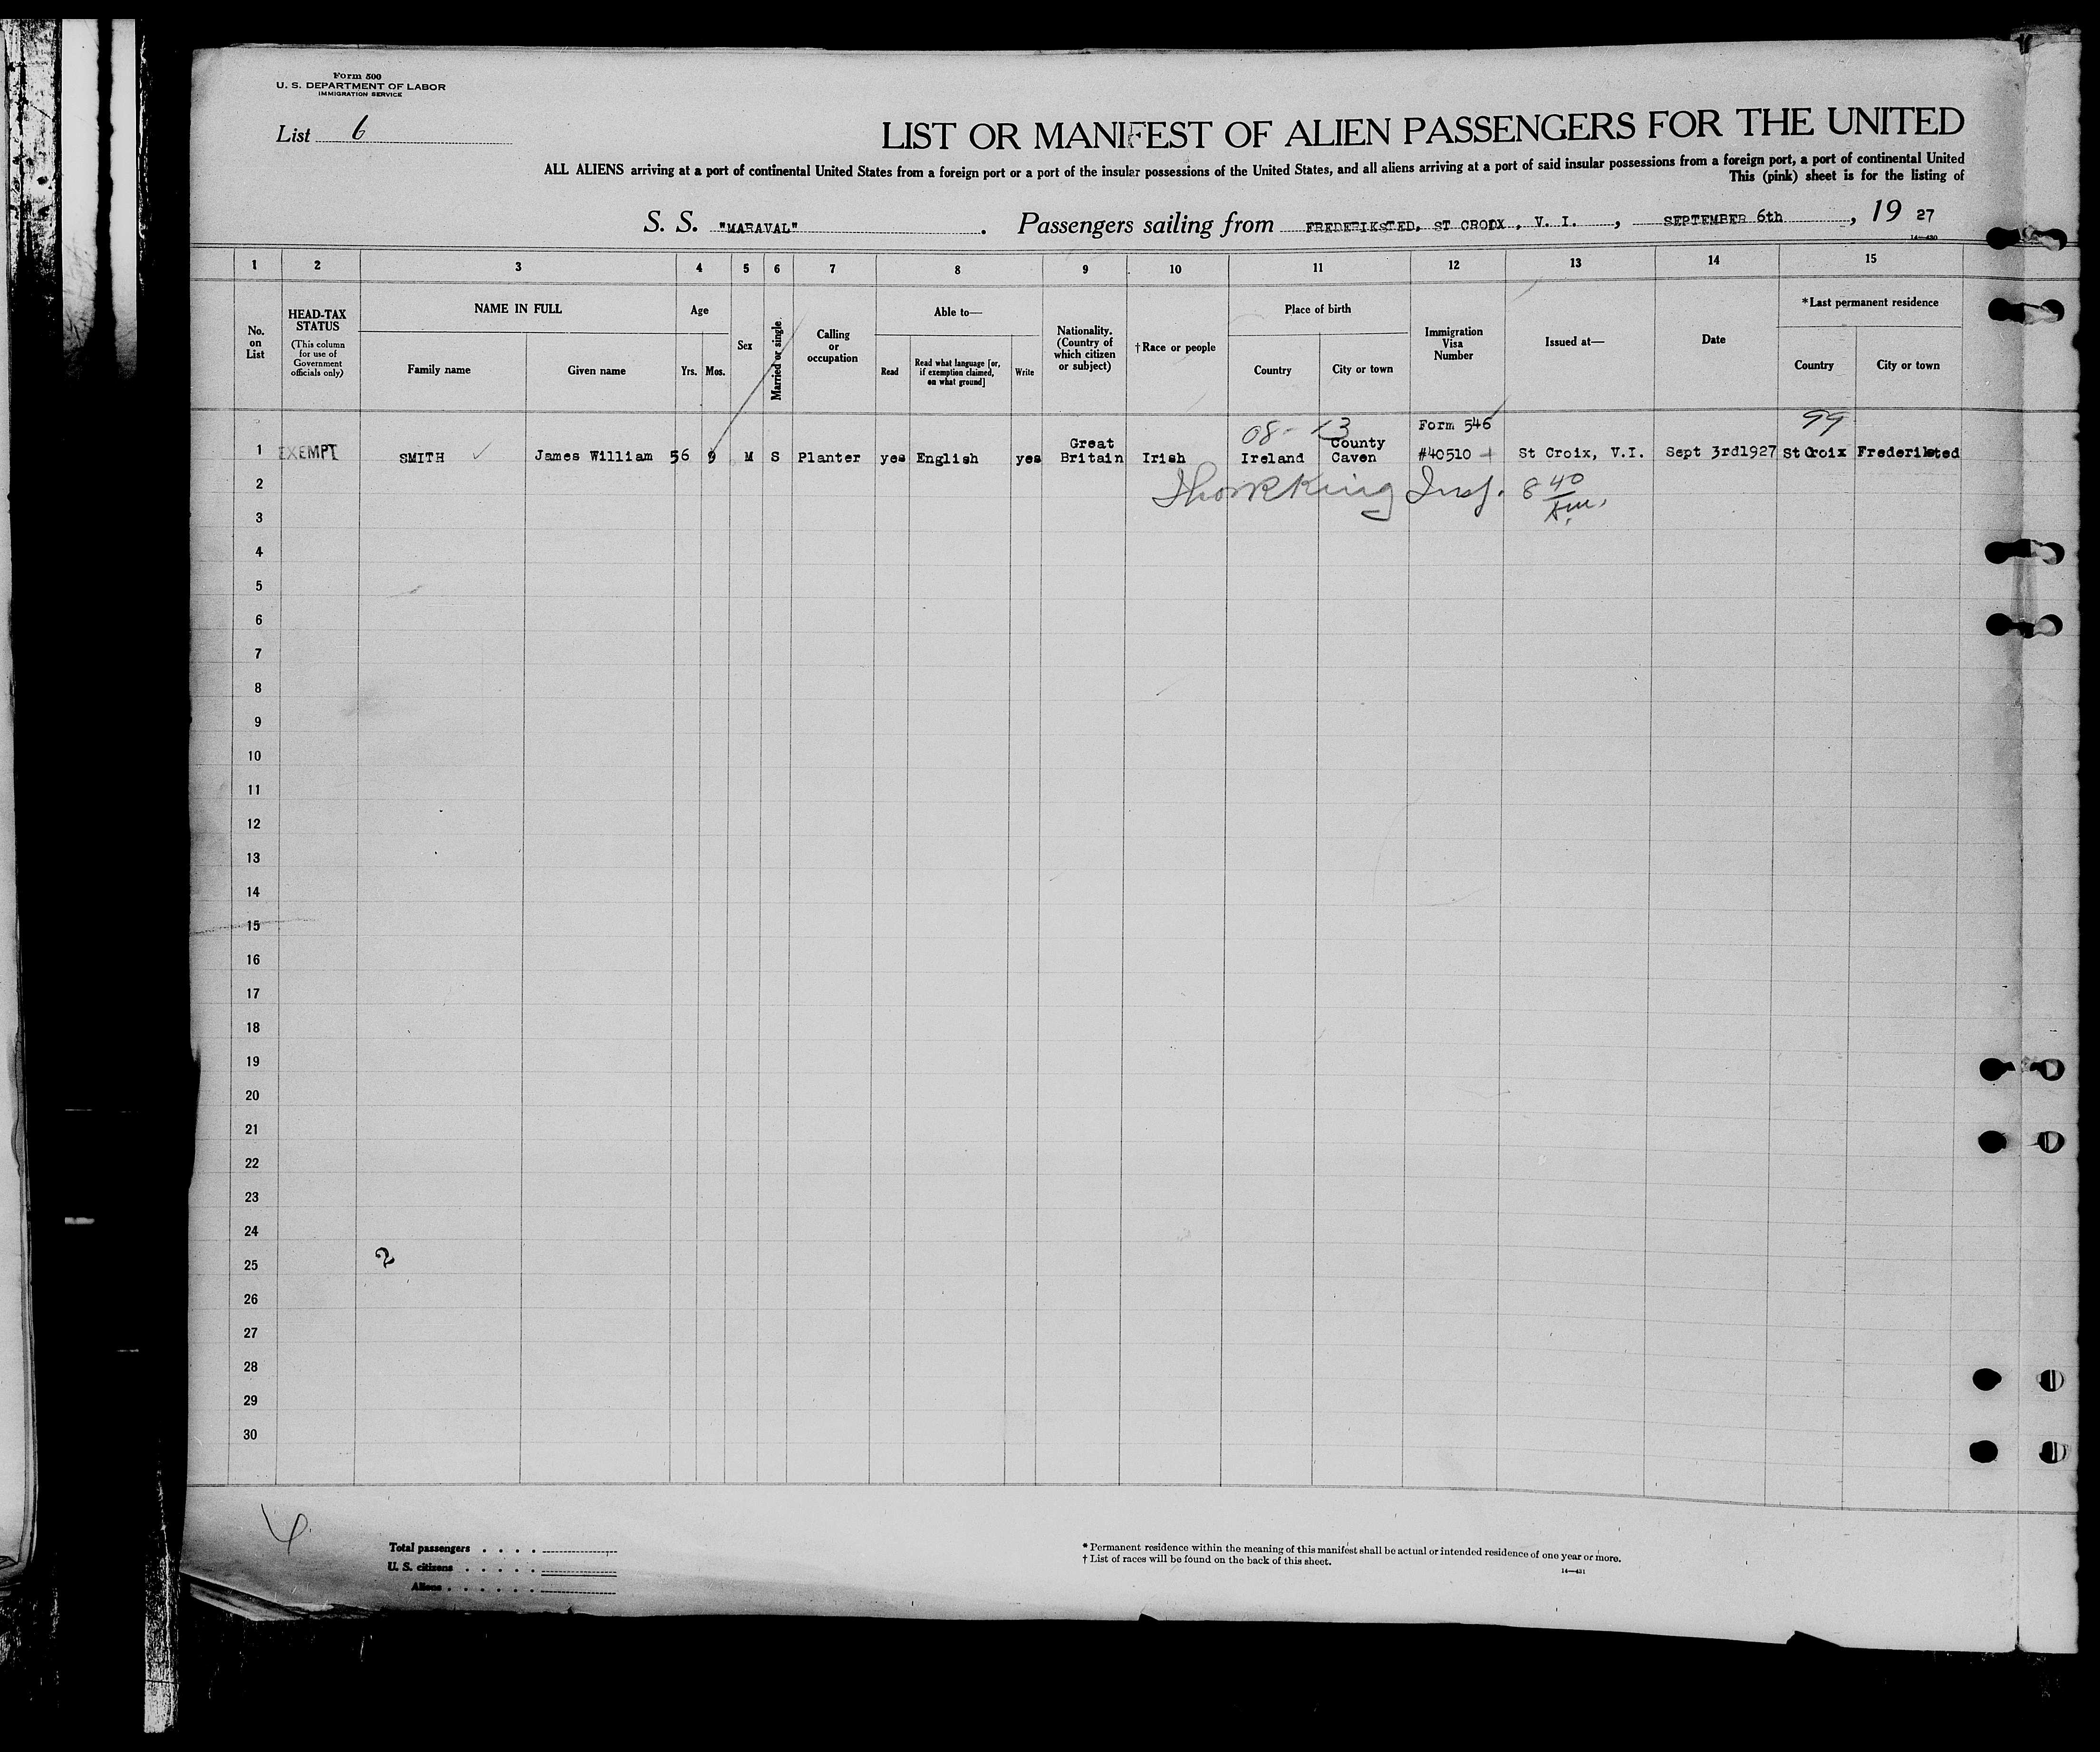 Form 500
U. S. DEPARTMENT OF LABOR
IMMIGRATION SERVICE
List 6
LIST OR MANIFEST OF ALIEN PASSENGERS FOR THE UNITED
ALL ALIENS arriving at a port of continental United States from a foreign port or a port of the insular possessions of the United States, and all aliens arriving at a port of said insular possessions from a foreign port, a port of continental United
This (pink) sheet is for the listing of
S. S. "MARAVAL". Passengers sailing from FREDERIKSTED, ST CROIX, V. I., SEPTEMBER 6th, 19 27
14—430
1 2 3 4 5 6 7 8 9 10 11 12 13 14 15
No. on List
HEAD-TAX STATUS (This column for use of Government officials only)
NAME IN FULL
Family name
Given name
Age
Yrs. Mos.
Sex
Married or single
Calling or occupation
Able to—
Read
Read what language [or, if exemption claimed, on what ground]
Write
Nationality. (Country of which citizen or subject)
†Race or people
Place of birth
Country
City or town
Immigration Visa Number
Issued at—
Date
*Last permanent residence
Country
City or town
08- 13 Form 546 99
1 EXEMPT SMITH ✓ James William 56 9 M S Planter yes English yes Great Britain Irish Ireland County Caven #40510 St Croix, V.I. Sept 3rd1927 St Croix Frederiksted
2 King Insp. 8 40 Am.
3
4
5
6
7
8
9
10
11
12
13
14
15
16
17
18
19
20
21
22
23
24
25
2
26
27
28
29
30
Total passengers . . . .
U. S. citizens . . . . .
Aliens . . . . . .
* Permanent residence within the meaning of this manifest shall be actual or intended residence of one year or more.
† List of races will be found on the back of this sheet.
14—431